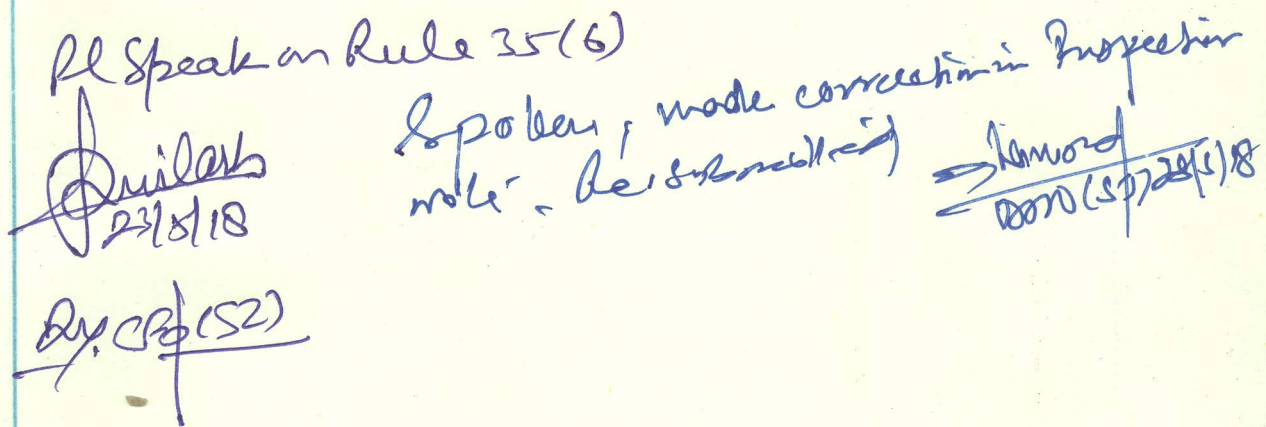 Pl Speak on Rule 35(6)
23/5/18
Dy. CFO (SZ)
Spoken, made correction in Inspection
note. Re-submitted
23/5/18